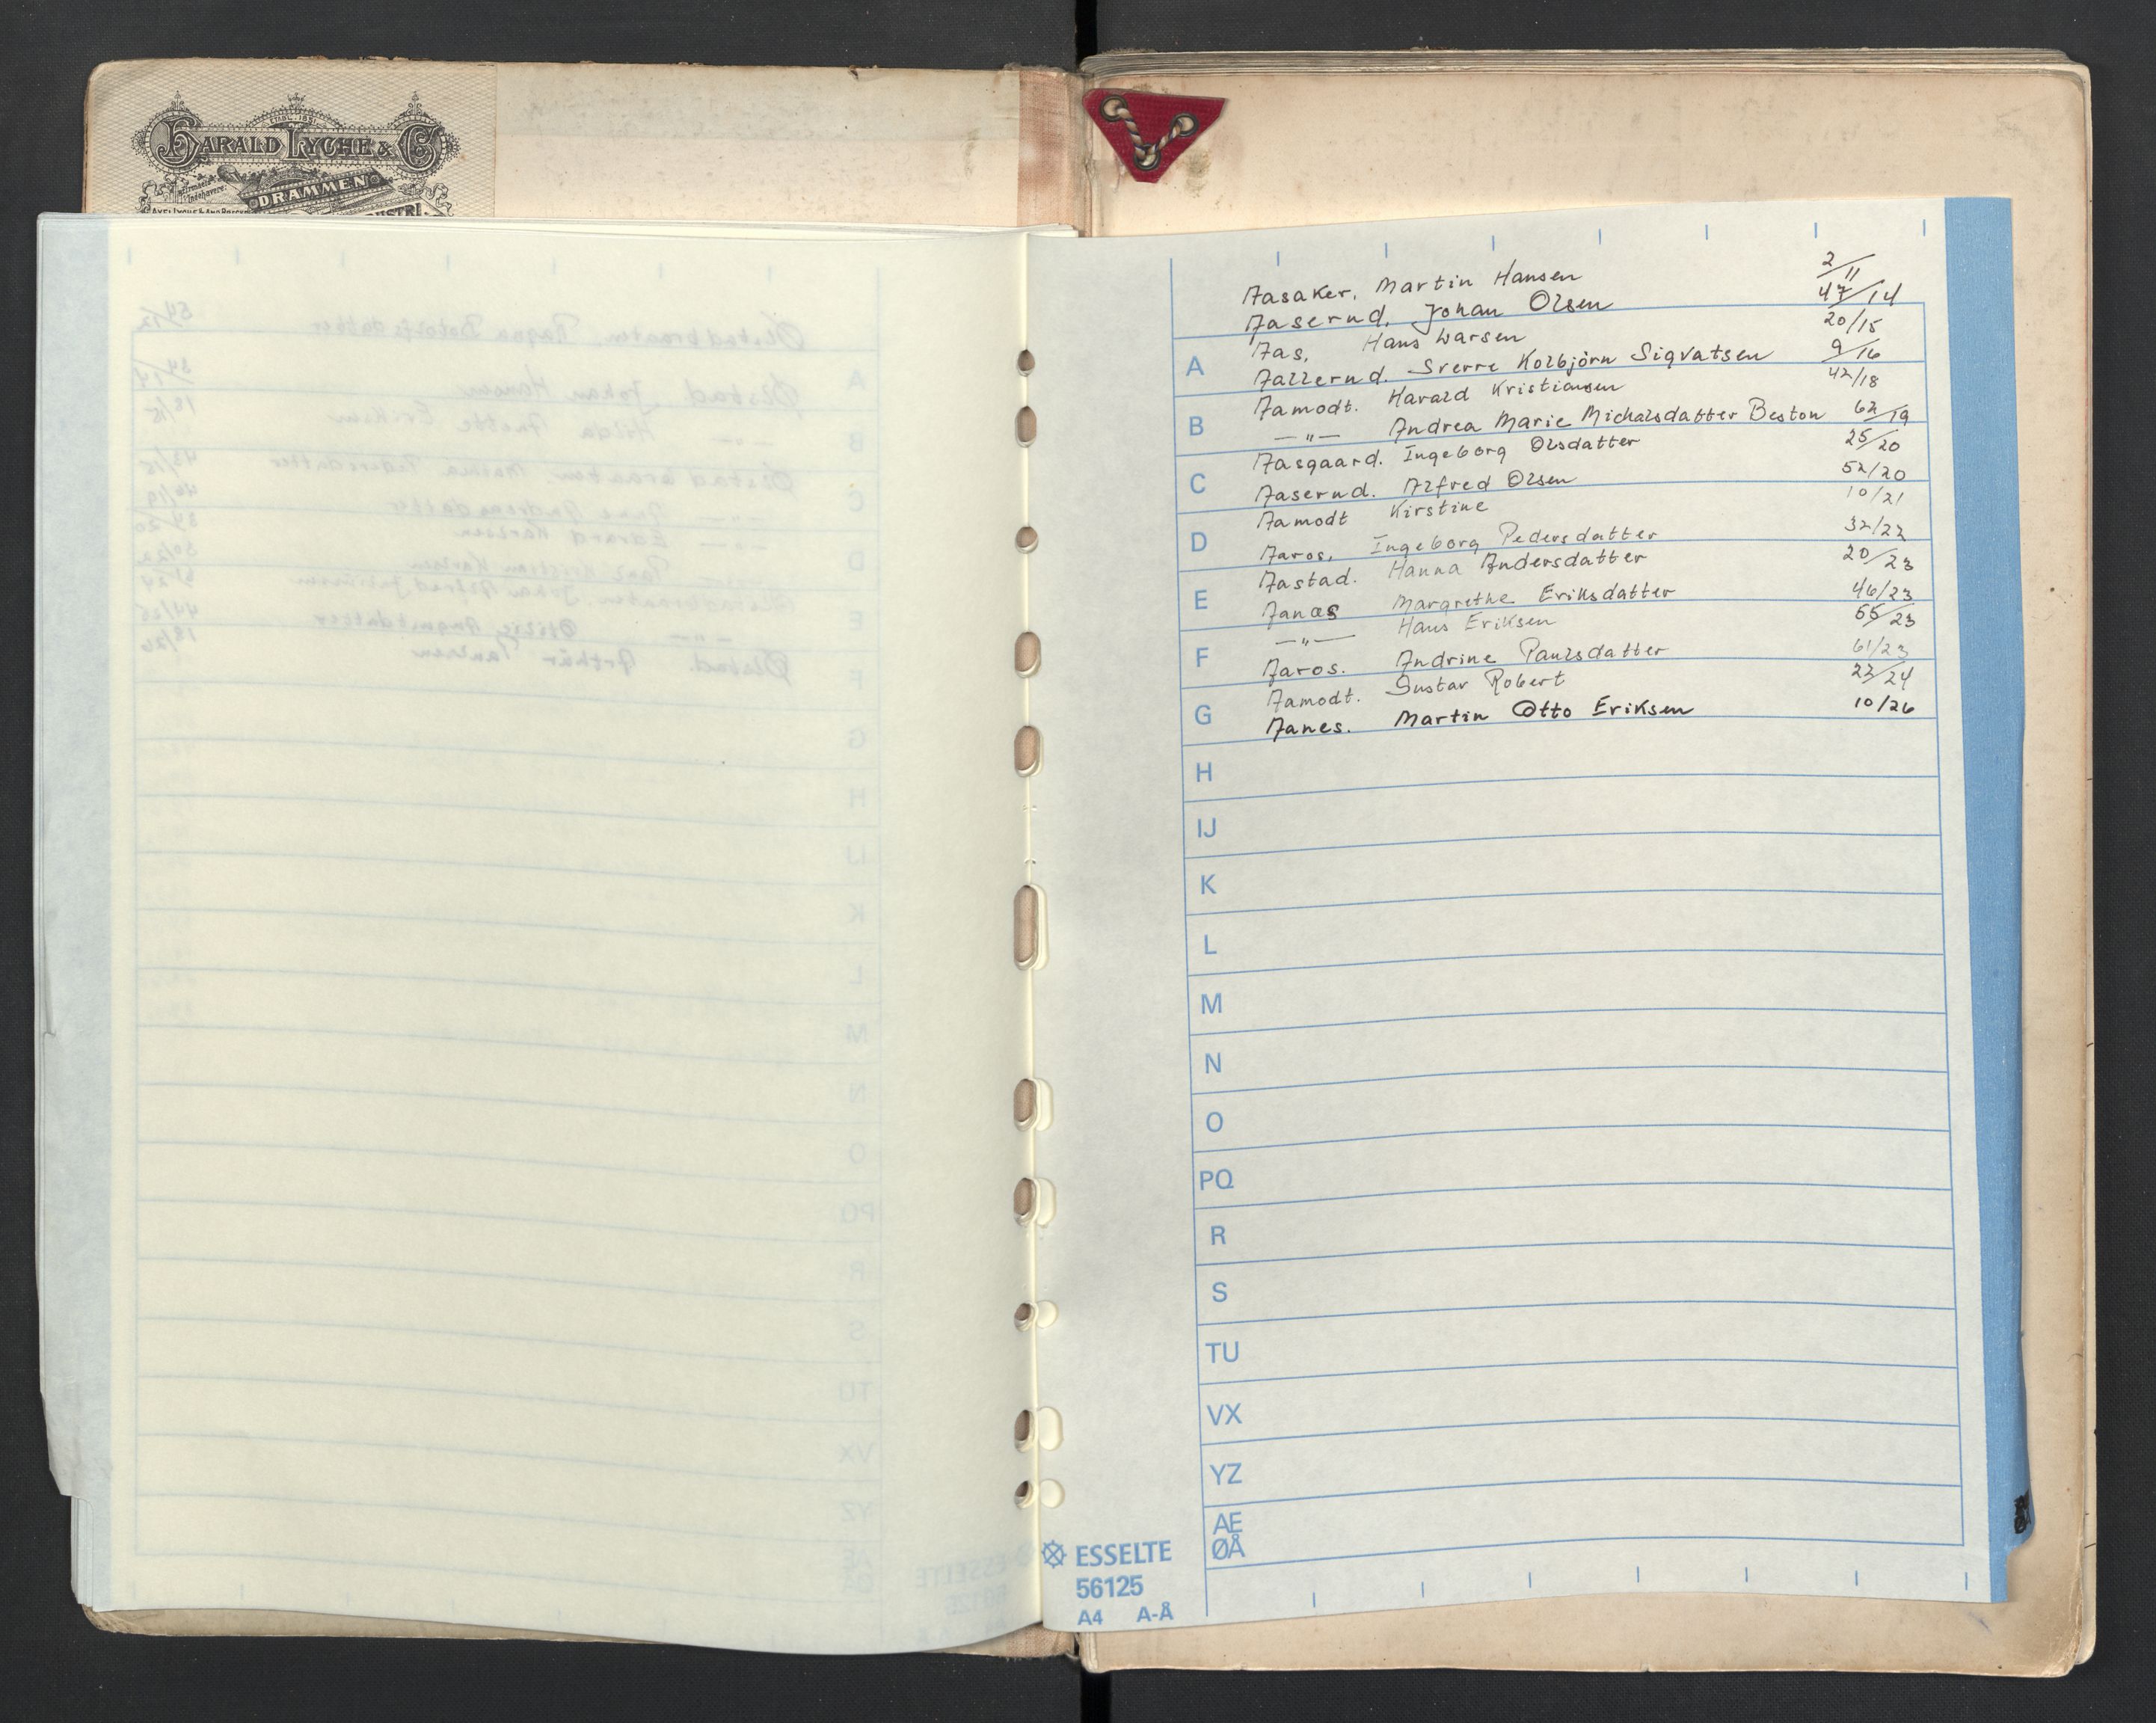 ETABL. 1851
HARALD LYCHE & Co
Firmaets Indehavere:
DRAMMEN
Aasaker. Martin Hansen 2/11
Aaserud. Johan Olsen 47/14
Aas. Hans Larsen 20/15
Aallerud. Sverre Kolbjörn Sigvatsen 9/16
Aamodt. Harald Kristiansen 42/18
—"— Andrea Marie Michalsdatter Beston 62/19
Aasgaard. Ingeborg Olsdatter 25/20
Aaserud. Alfred Olsen 52/20
Aamodt Kirstine 10/21
Aaros. Ingeborg Pedersdatter 32/22
Aastad. Hanna Andersdatter 20/23
Aanæs Margrethe Eriksdatter 46/23
—"— Hans Eriksen 55/23
Aaros. Andrine Paulsdatter 61/23
Aamodt. Gustav Robert 22/24
Aanes. Martin Otto Eriksen 10/26
A
B
C
D
E
F
G
H
IJ
K
L
M
N
O
PQ
R
S
TU
VX
YZ
AE
ØÅ
ESSELTE
56125
A4 A-Å